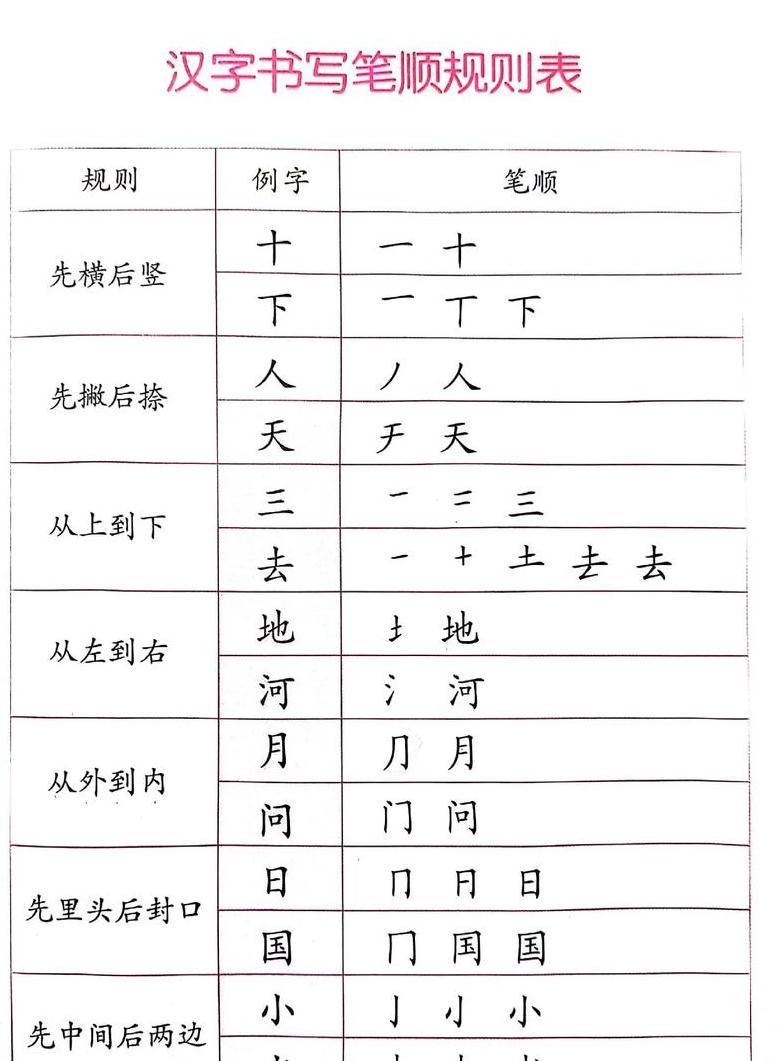 汉字书写笔顺规则表
规则 例字 笔顺
先横后竖 十 一 十
下 一 丅 下
先撇后捺 人 丿 人
天 チ 天
从上到下 三 一 二 三
去 一 十 土 去 去
从左到右 地 土 地
河 氵 河
从外到内 月 ⺆ 月
问 门 问
先里头后封口 日 冂 日
国 冂 国
先中间后两边 小 亅 小